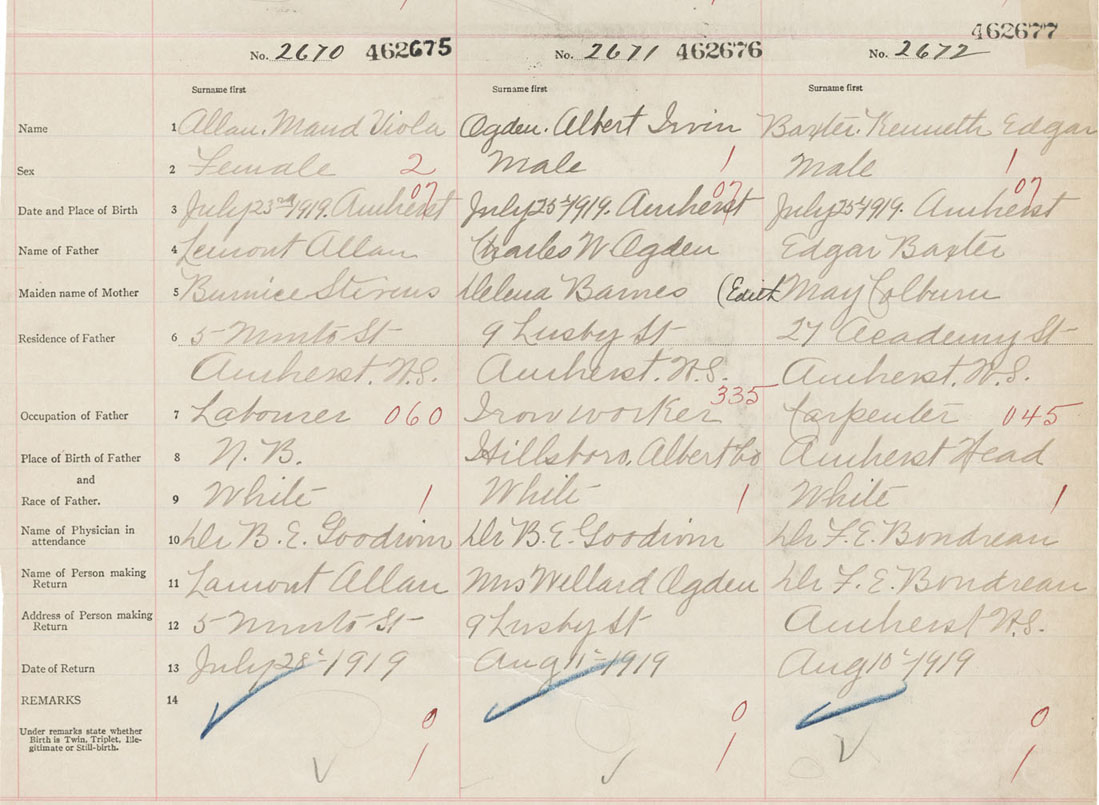 462677
No. 2670 462675 No. 2671 462676 No. 2672
Surname first Surname first Surname first
Name 1 Allan. Maud Viola Ogden. Albert Irvin Baxter. Kenneth Edgar
Sex 2 Female 2 Male 1 Male 1
07 07 07
Date and Place of Birth 3 July 23rd 1919. Amherst July 25th 1919. Amherst July 25th 1919. Amherst
Name of Father 4 Lemont Allan Charles W Ogden Edgar Baxter
Maiden name of Mother 5 Burnice Stevens Helena Barnes (Edith May Colburn
Residence of Father 6 5 Minto St 9 Lusby St 27 Academy St
Amherst. N.S. Amherst. N.S. Amherst. N.S.
Occupation of Father 7 Labourer 060 Iron worker 335 Carpenter 045
Place of Birth of Father 8 N.B. Hillsboro, Albert Co Amherst Head
and
Race of Father. 9 White 1 White 1 White 1
Name of Physician in
attendance 10 Dr B. E. Goodwin Dr B. E. Goodwin Dr F. E. Boudreau
Name of Person making
Return 11 Lamont Allan Mrs Wellard Ogden Dr F. E. Boudreau
Address of Person making
Return 12 5 Minto St 9 Lusby St Amherst N.S.
Date of Return 13 July 28th 1919 Aug 11th 1919 Aug 10th 1919
REMARKS 14
0 0 0
Under remarks state whether
Birth is Twin, Triplet, Ille-
gitimate or Still-birth.
1 1 1